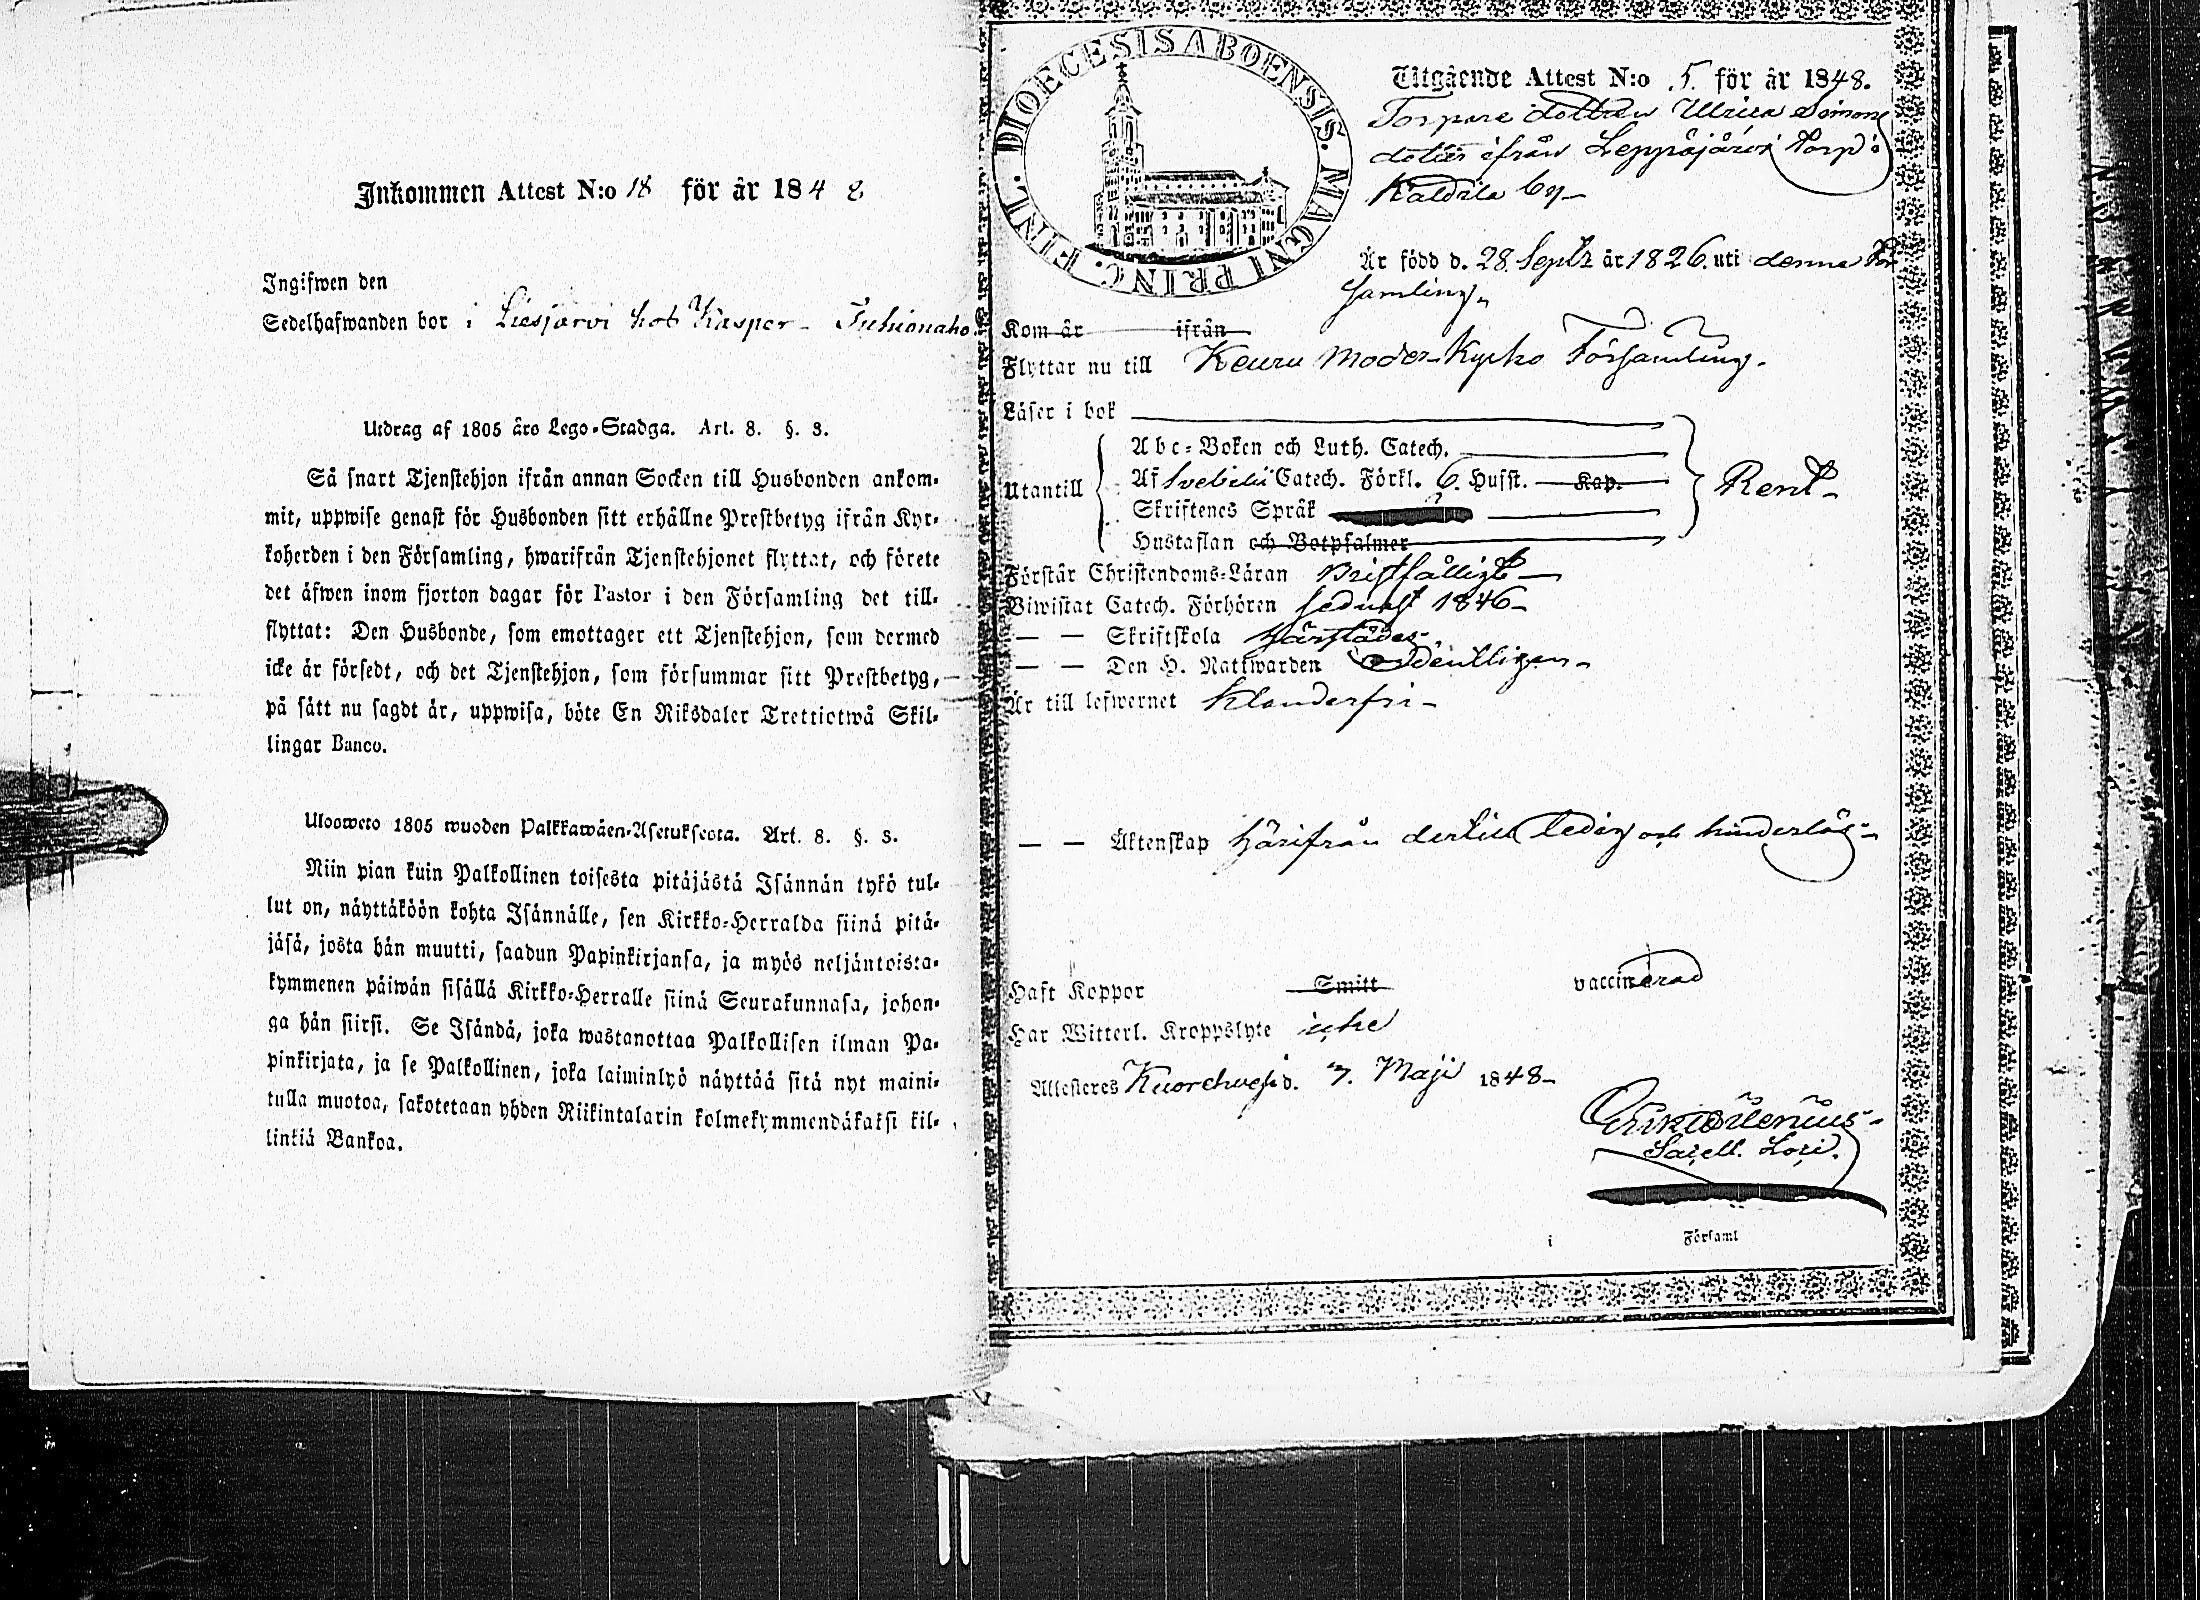 Inkommen Attest N:o 18 för år 1848
Ingifwen den
Sedelhafwanden bor i Liesjärvi hos Kasper
Utdrag af 1805 års Lego-Stadga. Art. 8. §. 3.
Så snart Tjenstehjon ifrån annan Socken till Husbonden ankom-
mit, uppwise genast för Husbonden sitt erhållne Prestbetyg ifrån Kyr-
koherden i den Församling, hwarifrån Tjenstehjonet flyttat, och förete
det äfwen inom fjorton dagar för Pastor i den Församling det till-
flyttat: Den Husbonde, som emottager ett Tjenstehjon, som dermed
icke är försedt, och det Tjenstehjon, som försummar sitt Prestbetyg,
på sätt nu sagdt är, uppwisa, böte En Riksdaler Trettiotwå Skil-
lingar Banco.
Ulosweto 1805 wuoden Palkkawäen-Asetuksesta. Art. 8. §. 3.
Niin pian kuin Palkollinen toisesta pitäjästä Isännän tykö tul-
lut on, näyttäköön kohta Isännälle, sen Kirkko-Herralda siinä pitä-
jäsä, josta hän muutti, saadun Papinkirjansa, ja myös neljäntoista-
kymmenen päiwän sisällä Kirkko-Herralle siinä Seurakunnasa, johon-
ga hän siirsi. Se Isändä, joka wastanottaa Palkollisen ilman Pa-
pinkirjata, ja se Palkollinen, joka laiminlyö näyttää sitä nyt maini-
tulla muotoa, sakotetaan yhden Riikintalarin kolmekymmendäkaksi kil-
linkiä Bankoa.
DIOECESIS ABOENSIS. MAGNI PRINC. FINL.
Utgående Attest N:o 5 för år 1848.
Torpare dottren Ulrica Simons
dotter ifrån Leppäjärvi torp i
Kaldila by
Är född d. 28 Septr år 1826. uti denna För
samling.
Kom år ifrån
Flyttar nu till Keuru Moder-Kyrko Församling.
Läser i bok
Utantill
Abc-Boken och Luth. Catech.
Af Svebilii Catech. Förkl. 6. Hufst. Kap.
Skriftenes Språk
Hustaflan och Botpsalmer
Rent
Förstår Christendoms-Läran Bristfälligt
Biwistat Catech. Förhören sednast 1846
— — Skriftskola härstädes
— — Den H. Nattwarden ordentligen
Är till lefwernet klanderfri
— — Äktenskap härifrån dertill ledig och hinderlös
Haft Koppor Smitt vaccinerad
Har Witterl. Kroppslyte icke
Attesteres Kuorehvesi d. 7. Maji 1848
Sacell. Loci.
i Församl